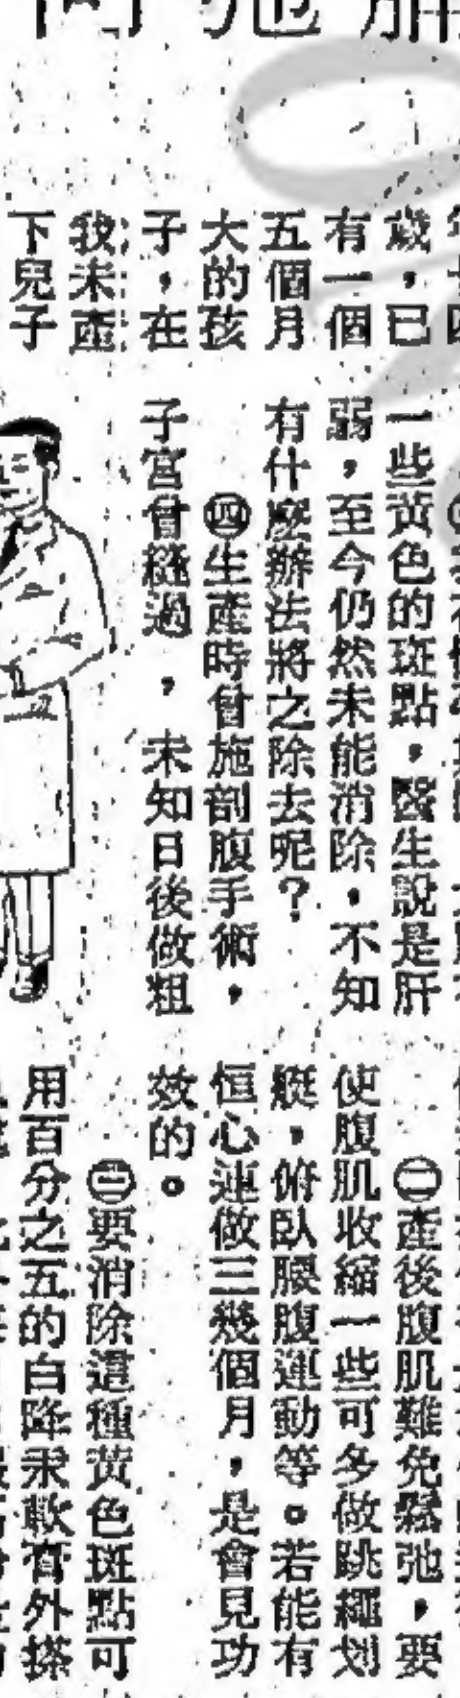 歲，已
有一個
五個月
大的孩
子，在
我未產
下兒子
一些黃色的斑點，醫生說是肝
弱，至今仍然未能消除，不知
有什麼辦法將之除去呢？
㊃生產時曾施剖腹手術，
子宮曾縫過，未知日後做粗
㊁產後腹肌難免鬆弛，要
使腹肌收縮一些可多做跳繩划
艇，俯臥腰腹運動等。若能有
恒心連做三幾個月，是會見功
效的。
㊂要消除這種黃色斑點可
用百分之五的白降汞軟膏外搽